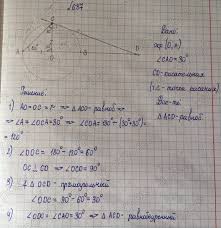 √687
Дано:
окр (O, r)
∠CAO = 30°
CD - касательная
(т.C - точка касания)
Док-ть:
△ACD - равноб.
A
O
B
D
Решение:
1) AO = OC = r ⇒ △AOC - равноб. ⇒
⇒ ∠A = ∠OCA = 30° ⇒ ∠COA = 180° - (30° + 30°) =
= 120°
2) ∠DOC = 180° - 120° = 60°
OC ⊥ CD ⇒ ∠OCD = 90°
3) △OCD - прямоугольный
∠ODC = 90° - 60° = 30°
4) ∠ODC = ∠CAO = 30° ⇒ △ACD - равнобедренный